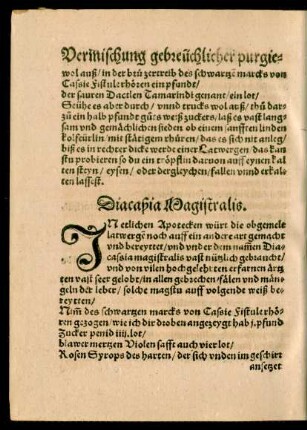 Vermischung gebreüchlicher purgie-
wol auß/ in der brü zertreib des schwartzē marcks von
Cassie Fistulerhören ein pfundt/
der sauren Dactlen Tamarindi genant/ ein lot/
Seühe es aber durch/ vnnd trucks wol auß/ thů dar-
zů ein halb pfundt gůts weiß zuckers/ laß es vast lang-
sam und gemächlichen sieden ob einem sanfften linden
kolfeürlin/ mit stätigem rhüren/ das es sich nit anleg/
biß es in rechter dicke werde einer Latwergen/ das kan-
stu probieren so du ein tröpflin daruon auff eynen kal
ten steyn/ eysen/ oder dergleychen/ fallen vnnd erkal-
ten lassest.
Diacaßia Magistralis.
IN etlichen Apotecken würt die obgemelt
latwerge noch auff ein andere art gemacht
vnd bereyttet/ vnd vnder dem nammē Dia-
cassia magistralis vast nützlich gebraucht/
vnd von vilen hochgelehrten erfarnen ärtz
ten vast seer gelobt/ in allen gebrechen/ fälen vnd män-
geln der leber/ solche magstu auff volgende weiß be-
reytten/
Nim des schwartzen marcks von Cassie Fistulerhö-
ren gezogen/ wie ich dir droben angezeygt hab j. pfund
Zucker penid iiij. lot/
blawer mertzen Violen safft auch vier lot/
Rosen Syrops des harten/ der sich vnden im geschirr
ansetzet